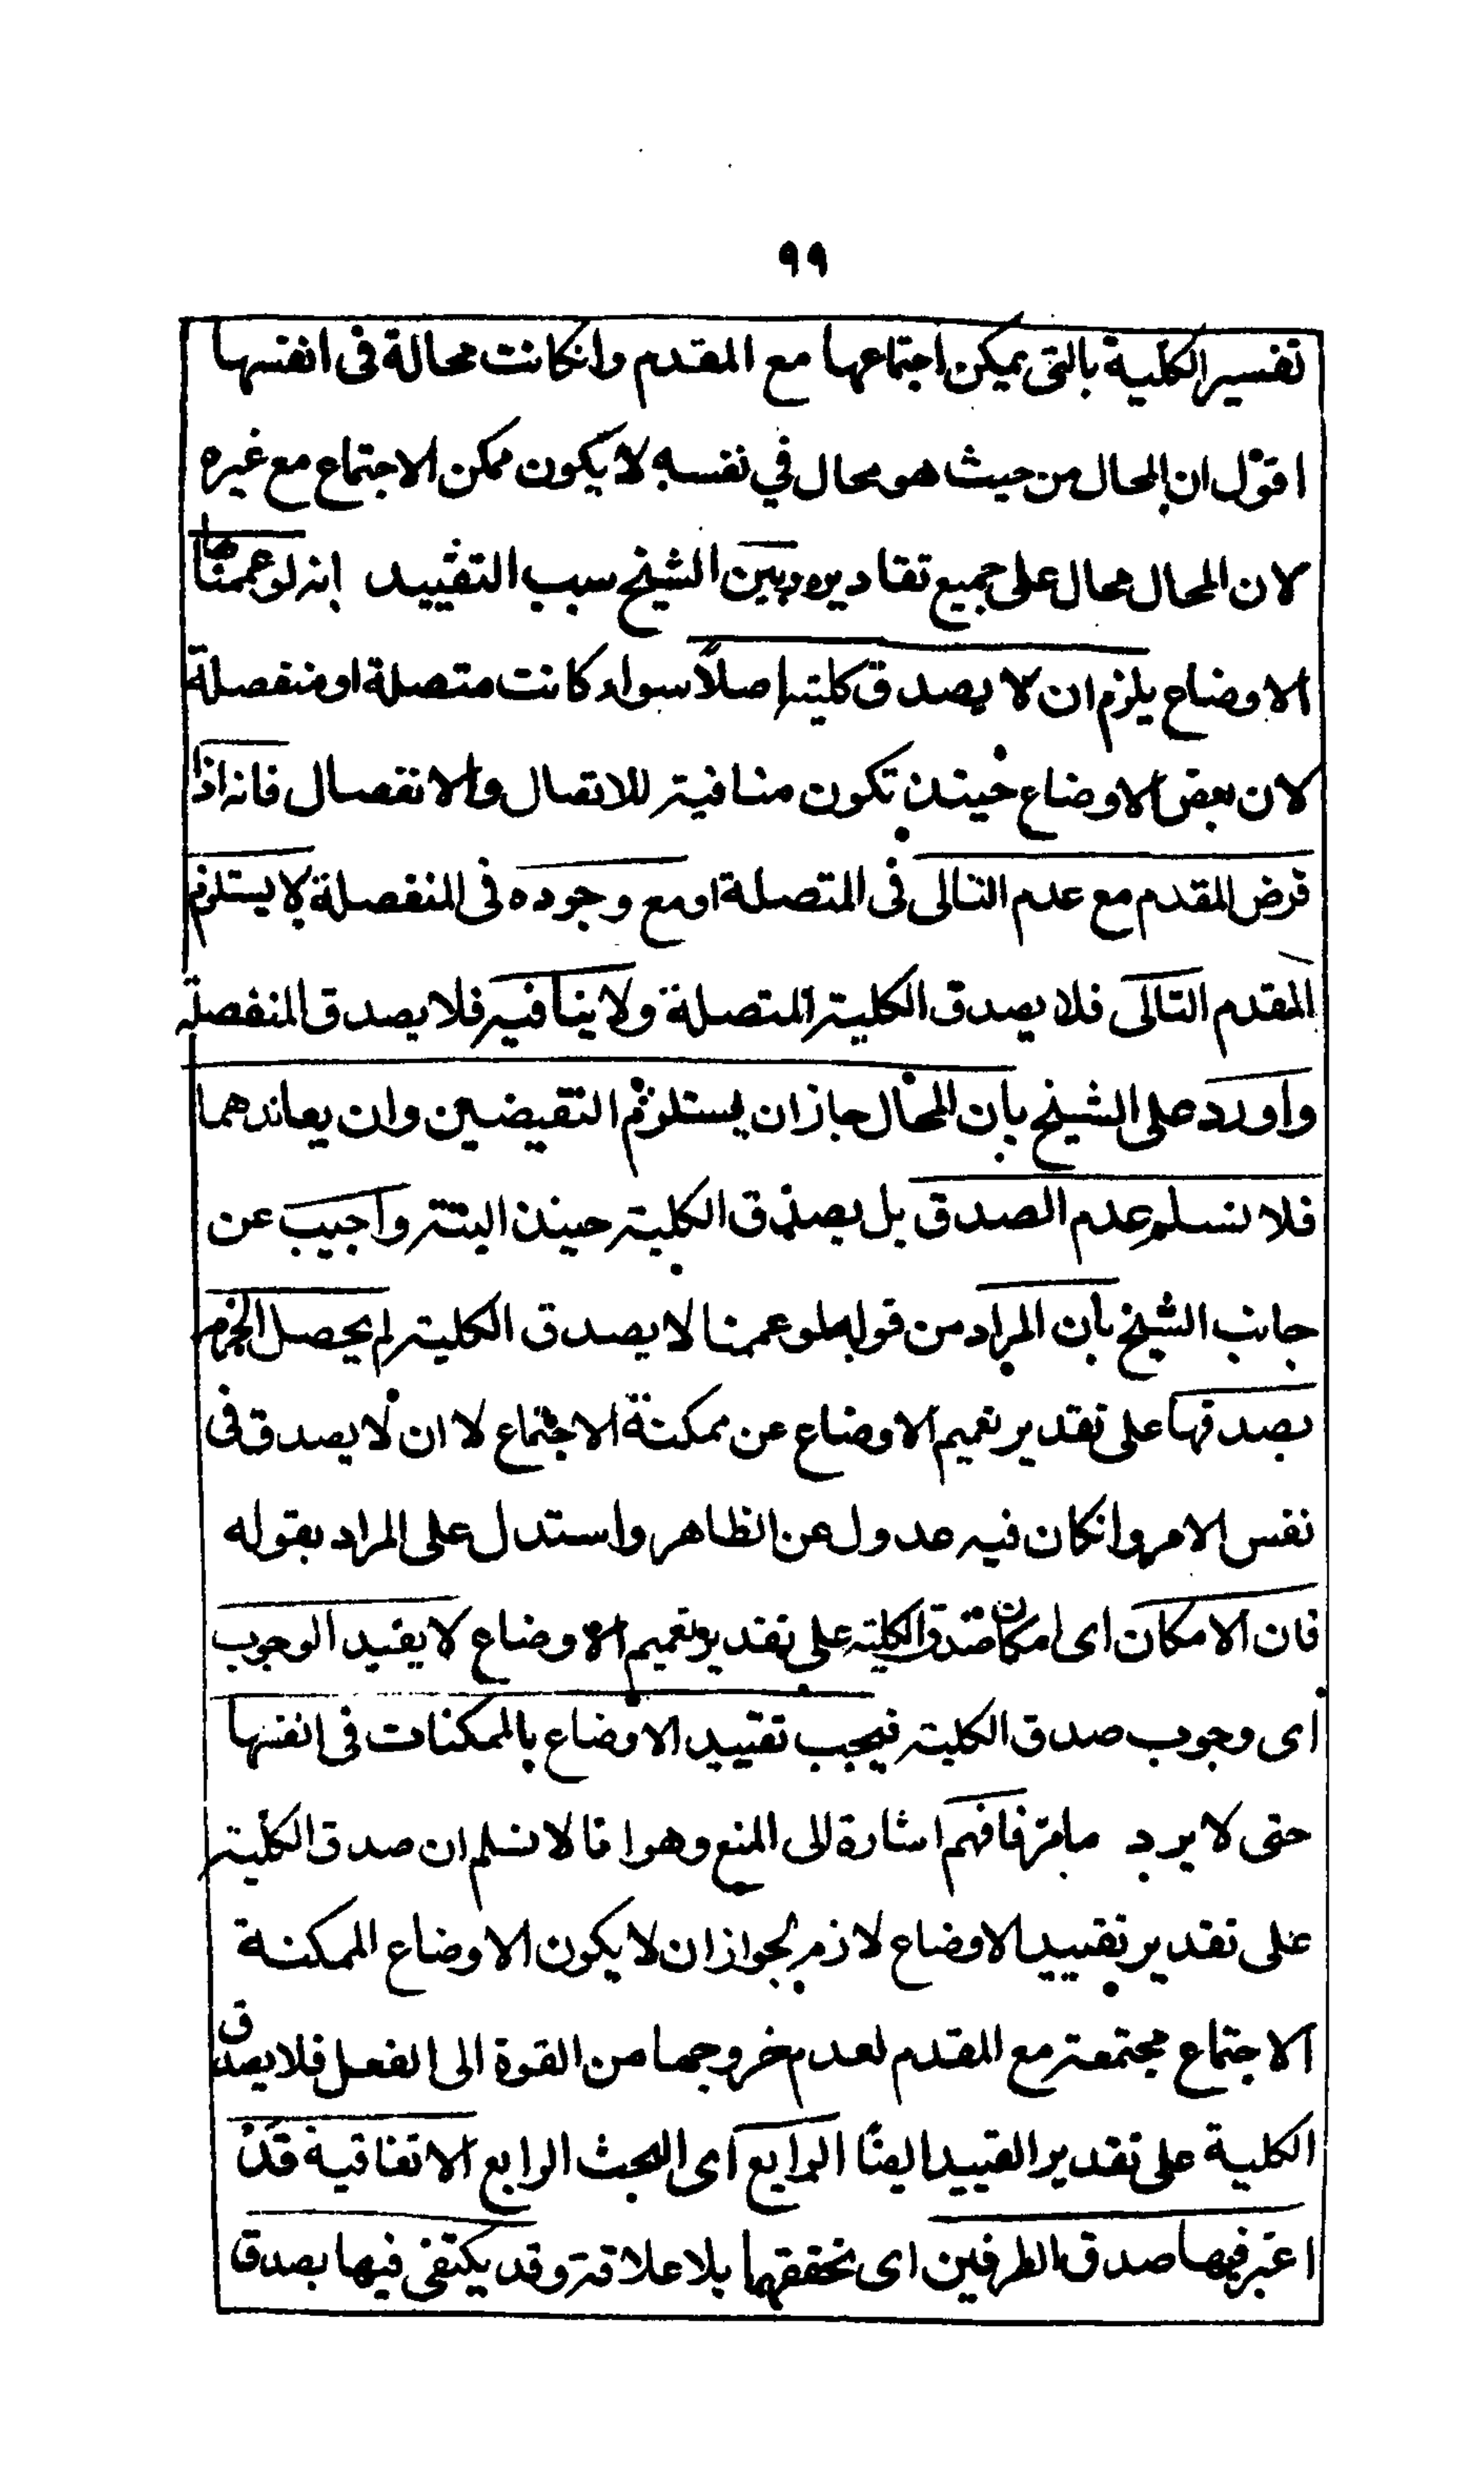 ٩٩
تفسير الكلية بالتى يمكن اجتماعها مع المقدم وانكانت محالة فى انفسها
اقول ان المحال من حيث هو محال في نفسه لا يكون ممكن الاجتماع مع غيره
لان المحال محال على جميع تقاديره وبين الشيخ سبب التقييد انه لو عممنا
الاوضاع يلزم ان لا يصدق كلية اصلاً سواء كانت متصلة او منفصلة
لان بعض الاوضاع حينئذ تكون منافية للاتصال والانفصال فانه اذا
فرض المقدم مع عدم التالى فى المتصلة او مع وجوده فى المنفصلة لا يستلزم
المقدم التالى فلا يصدق الكلية المتصلة ولا ينافيه فلا يصدق المنفصلة
واورد على الشيخ بان المحال جاز ان يستلزم النقيضين وان يعاندهما
فلا نسلم عدم الصدق بل يصدق الكلية حينئذ البتة واجيب عن
جانب الشيخ بان المراد من قوله لو عممنا لا يصدق الكلية لم يحصل الجزم
بصدقها على تقدير تعميم الاوضاع عن ممكنة الاجتماع لا ان لا يصدق فى
نفس الامر وانكان فيه عدول عن الظاهر واستدل على المراد بقوله
فان الامكان اى امكان صدق الكلية على تقدير تعميم الاوضاع لا يفيد الوجوب
اى وجوب صدق الكلية فيجب تقييد الاوضاع بالممكنات فى انفسها
حتى لا يرد ما مر فافهم اشارة الى المنع وهو انا لا نسلم ان صدق الكلية
على تقدير تقييد الاوضاع لازم لجواز ان لا يكون الاوضاع الممكنة
الاجتماع مجتمعة مع المقدم لعدم خروجها من القوة الى الفعل فلا يصدق
الكلية على تقدير القييد ايضًا الرابع اى البحث الرابع الاتفاقية قد
اعتبر فيها صدق الطرفين اى تحققهما بلا علاقة وقد يكتفى فيها بصدق